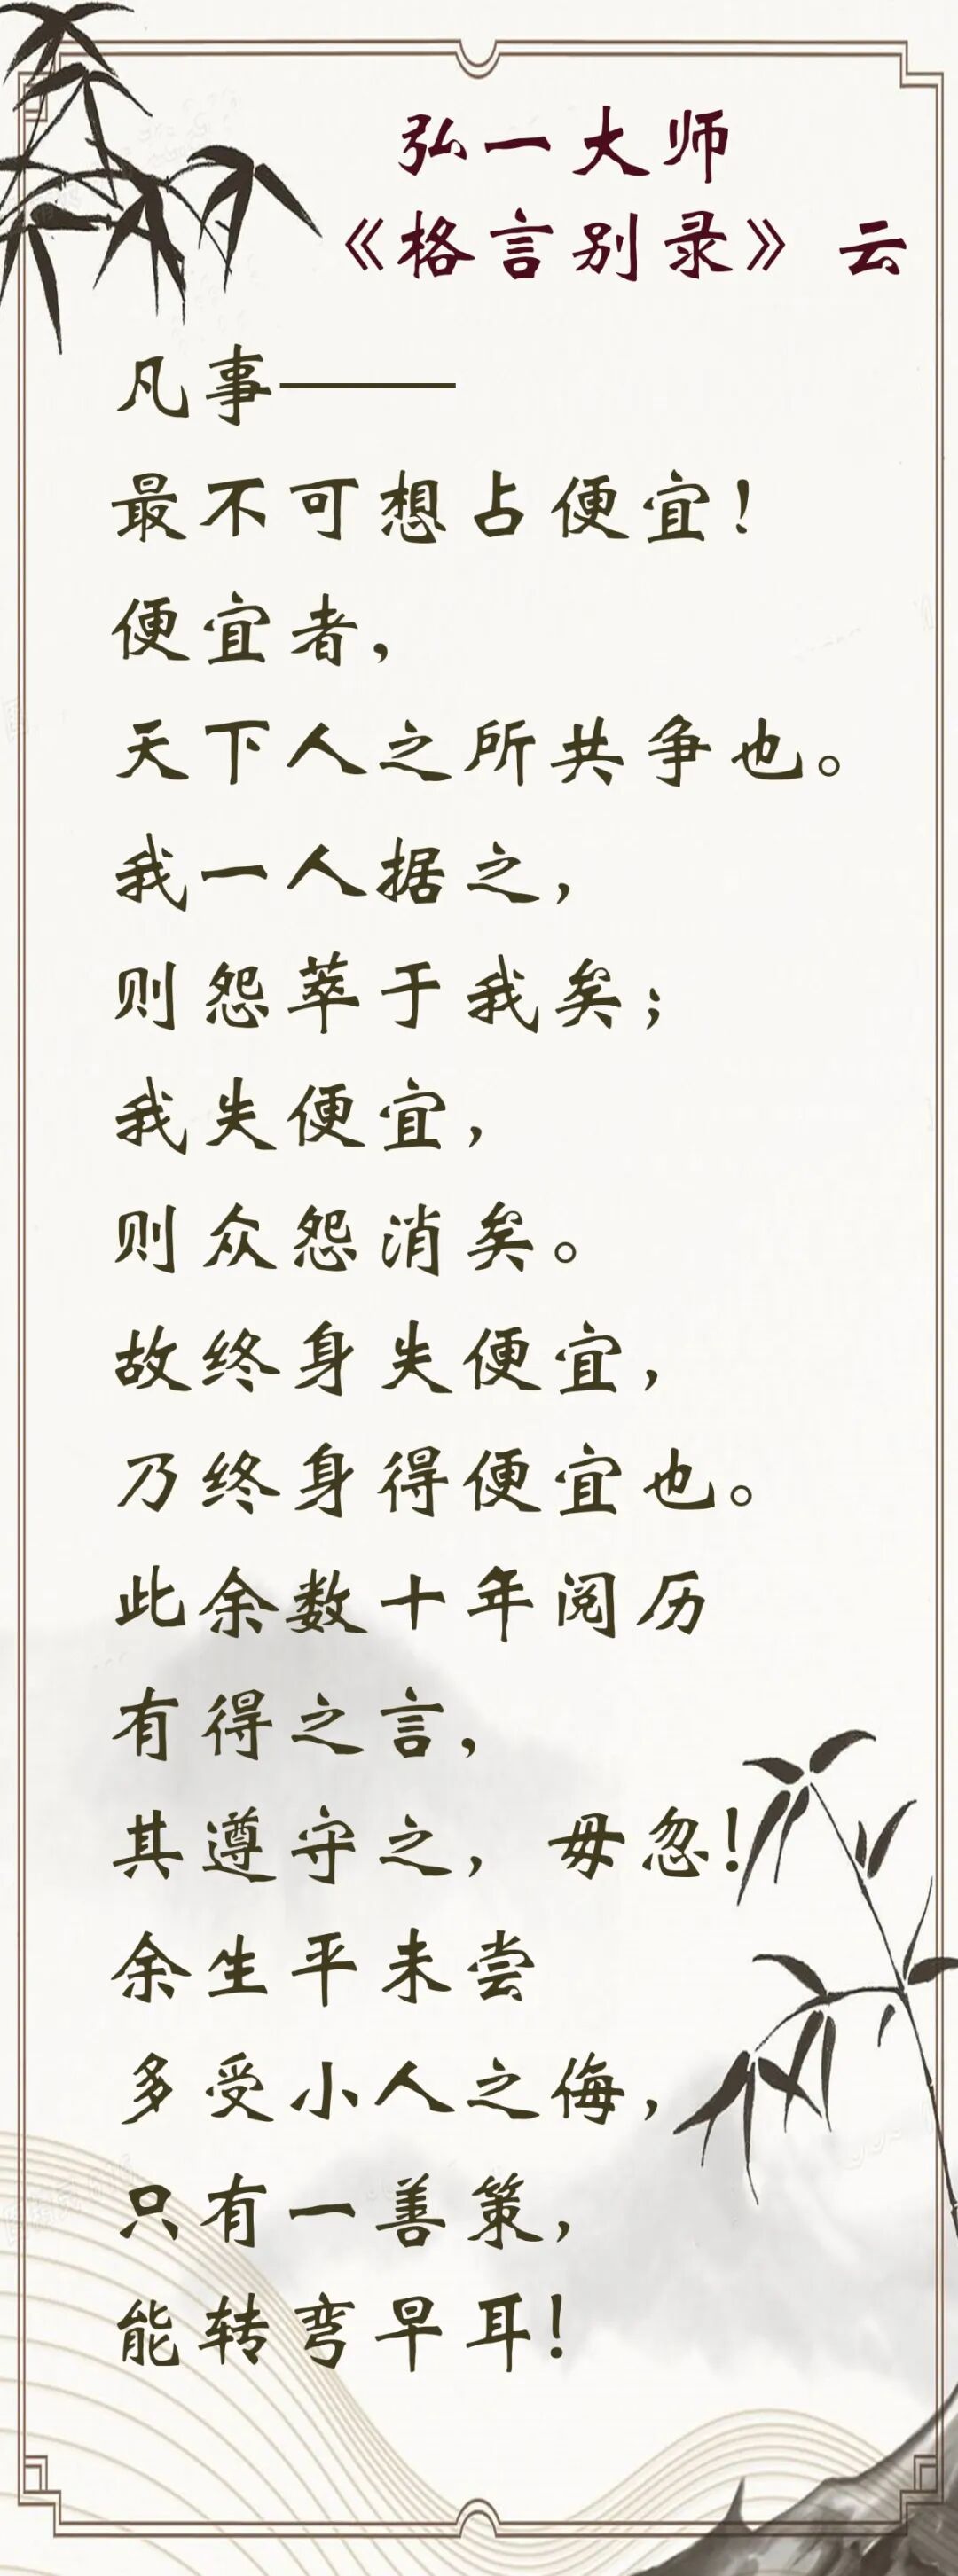 弘一大师
《格言别录》云
凡事——
最不可想占便宜！
便宜者，
天下人之所共争也。
我一人据之，
则怨萃于我矣；
我失便宜，
则众怨消矣。
故终身失便宜，
乃终身得便宜也。
此余数十年阅历
有得之言，
其遵守之，毋忽！
余生平未尝
多受小人之侮，
只有一善策，
能转弯早耳！